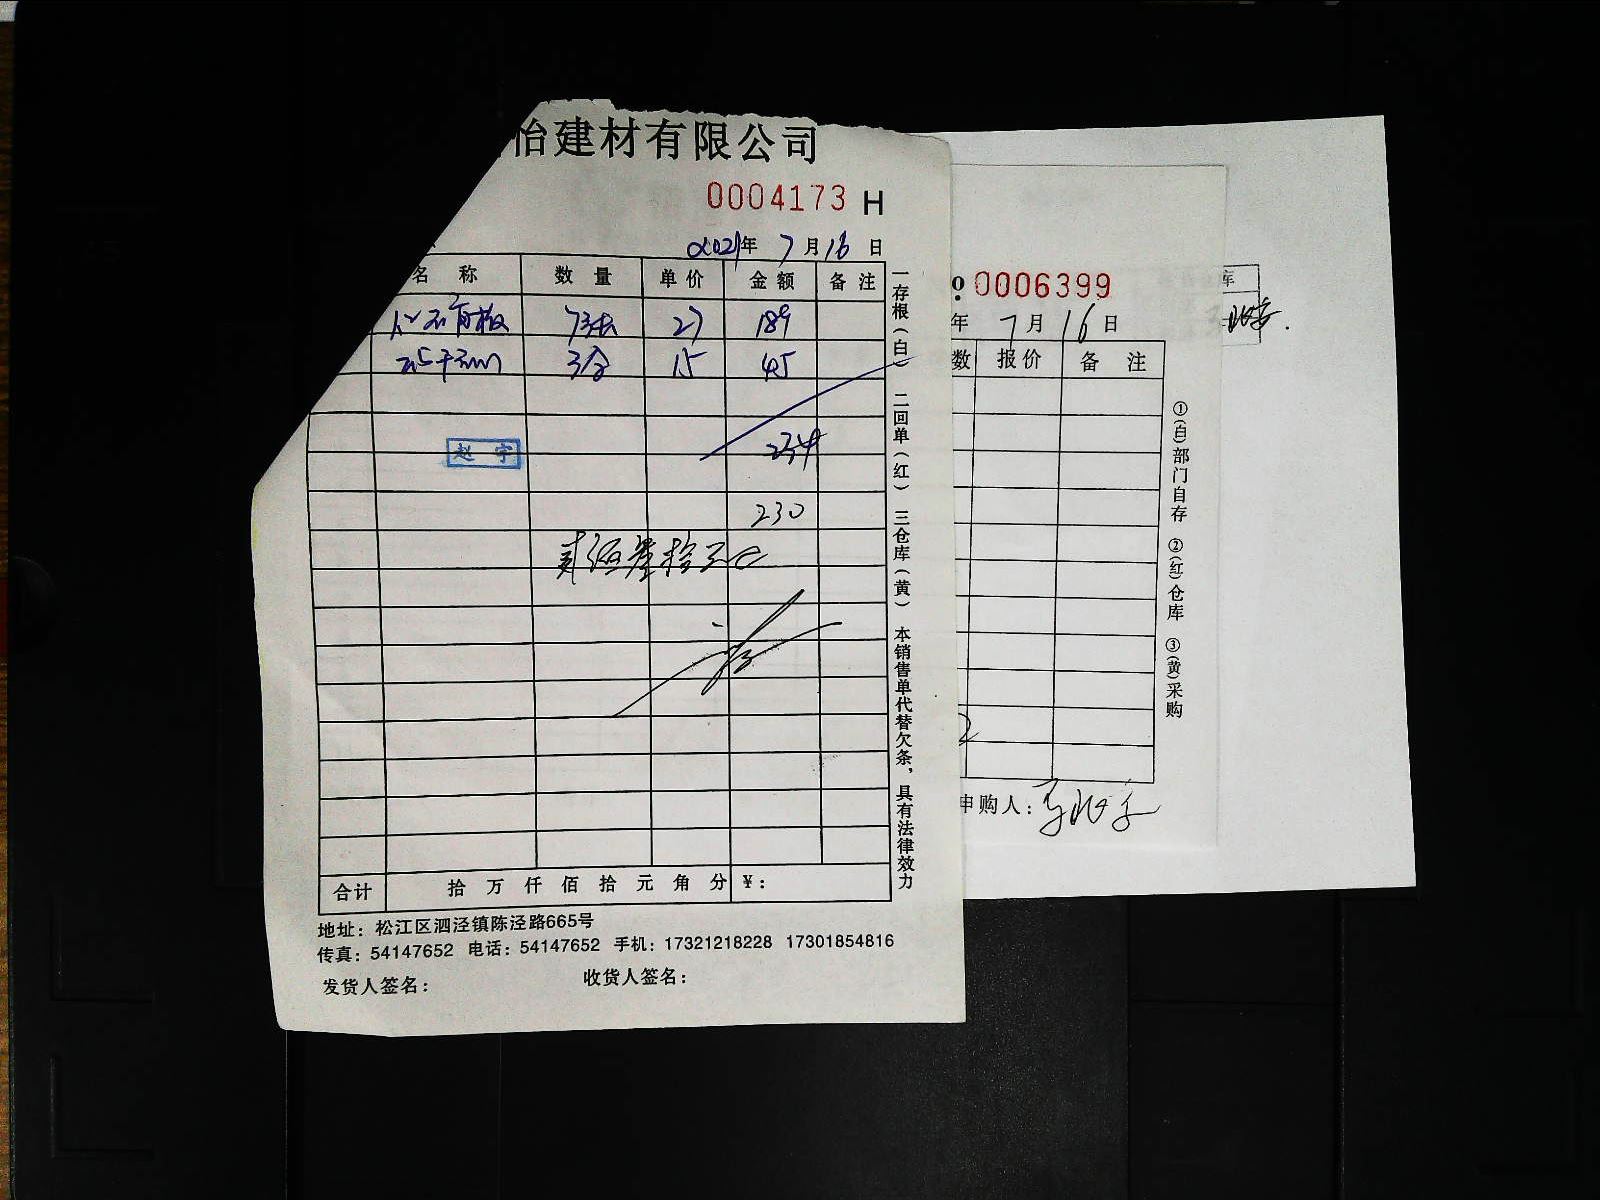 怡建材有限公司
0004173 H
2021年 7月16日
名 称 数 量 单 价 金 额 备 注
石膏板 7张 27 189
3合 15 45
234
赵 宇
230
贰佰叁拾元
合计 拾 万 仟 佰 拾 元 角 分 ¥：
地址：松江区泗泾镇陈泾路665号
传真：54147652 电话：54147652 手机：17321218228 17301854816
发货人签名： 收货人签名：
一存根（白） 二回单（红） 三仓库（黄） 本销售单代替欠条，具有法律效力
0006399
年 7月16日
数 报价 备 注
①(白)部门自存 ②(红)仓库 ③(黄)采购
申购人：
库